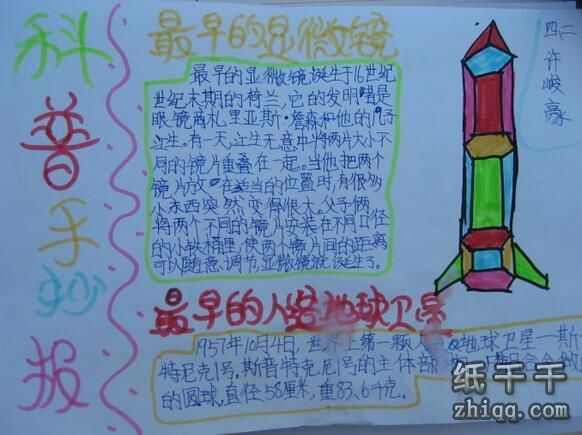 科普手抄报
最早的显微镜
最早的显微镜诞生于16世纪
世纪末期的荷兰,它的发明者是
眼镜商札里亚斯·詹森和他的儿子
江生。有一天,江生无意中将两片大小不
同的镜片重叠在一起。当他把两个
镜片放在适当的位置时,有很多
小东西突然变得很大。父子俩
将两个不同的镜片安装在不同口径
的小铁桶里,使两个镜片间的距离
可以随意调节,显微镜就诞生了。
最早的人造地球卫星
1957年10月4日,世界上第一颗人 地球卫星—斯
特尼克1号,斯普特克尼1号的主体部 铝合金做
的圆球,直径58厘米,重83.64千克。
四二
许峻豪
纸千千
zhiqq.com